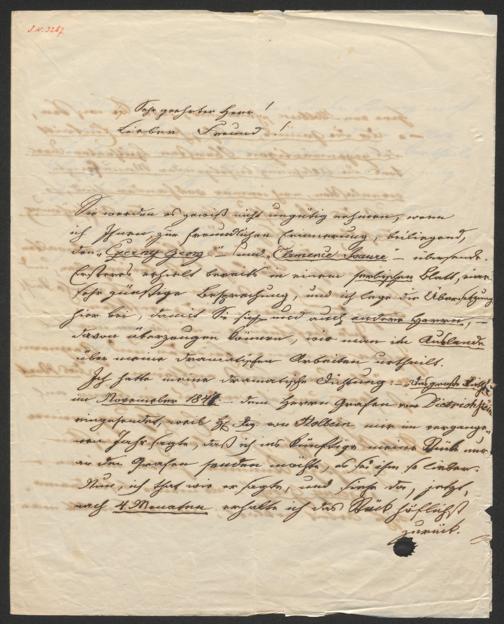 J.N. 3267
Sehr geehrter Herr!
Lieber Freund!
Sie werden es gewiß nicht ungütig nehmen, wenn
ich Ihnen zur freundlichen Erinnerung, beiliegend,
den „Czerny Georg“ – und „Clemence Isaure – übersende.
Ersteres erhielt bereits in einem serbischen Blatt, eine
sehr günstige Besprechung, und ich lege die Übersetzung
hier bei, damit Sie und auch andere Herren, –
davon überzeugen können, wie man im Auslande
über meine dramatischen Arbeiten urtheilt.
Ich hatte meine dramatische Dichtung –
im November 184 – dem Herrn Grafen von Dietrichstein
eingesendet, weil H. von Holbein mir im vergange-
nen Jahr sagte, daß ich ins Künftige meine Stücke nur
an den Grafen senden möchte, es sei ihm so lieber.
Nun, ich that wie er sagte, und siehe da, jetzt,
nach 4 Monaten erhalte ich das Stück höflichst
zurück.